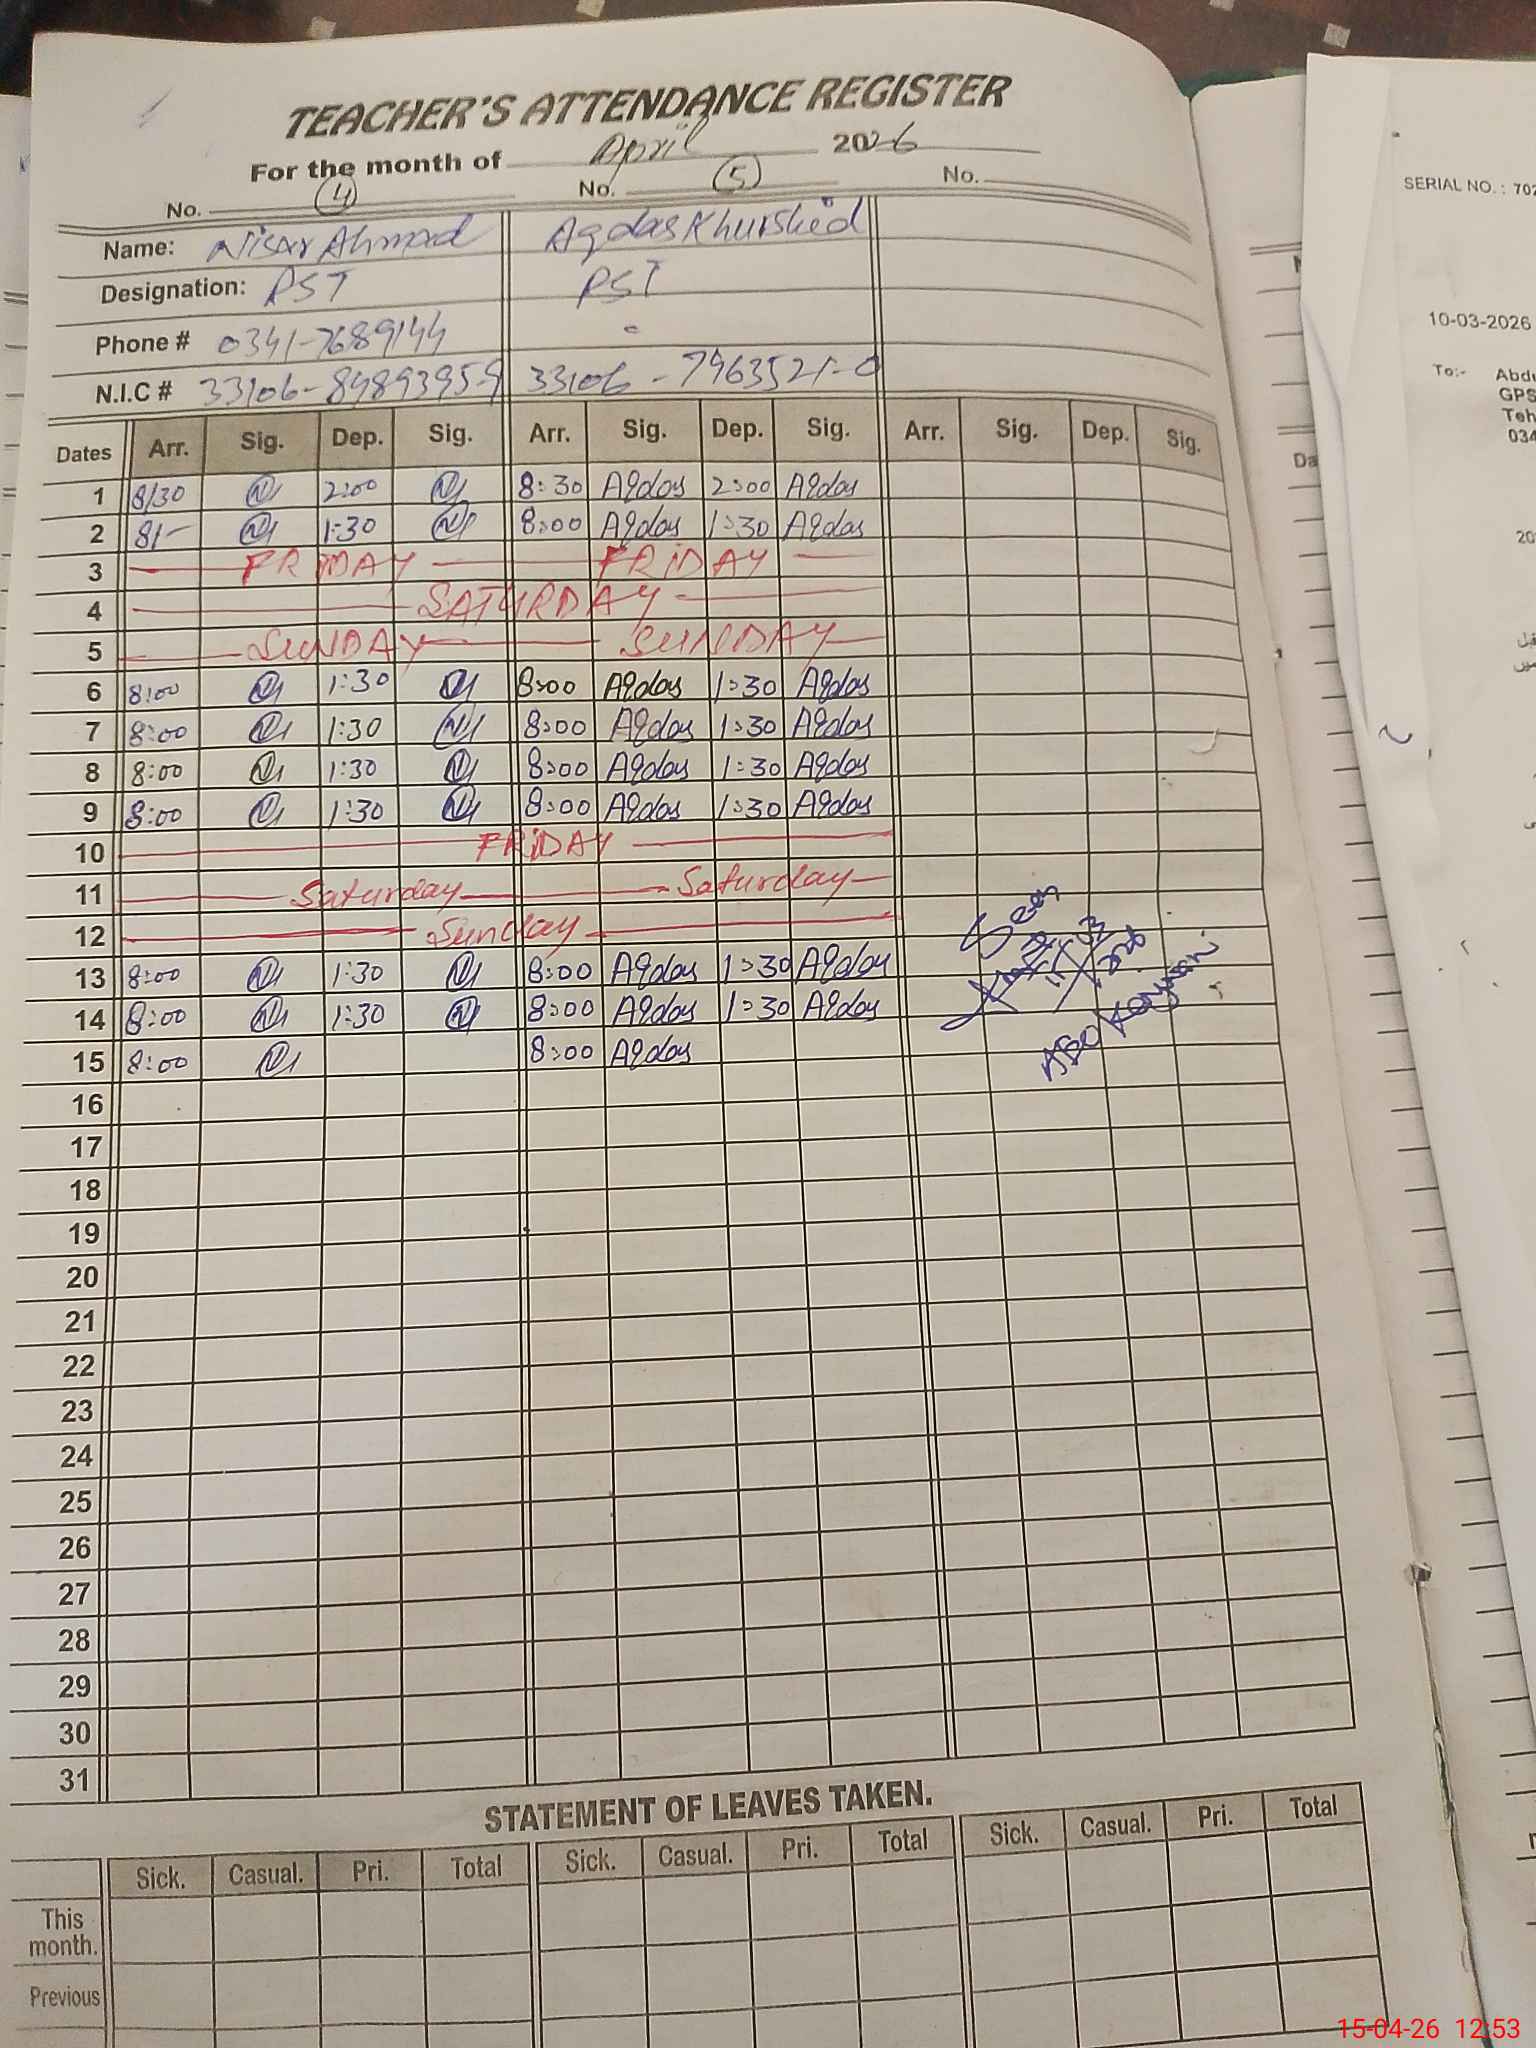 TEACHER'S ATTENDANCE REGISTER
For the month of April 2026
No. 4 No. 5 No.
Name: Nisar Ahmad Aqdas Khurshid
Designation: PST PST
Phone # 0341-7689144 -
N.I.C # 33106-8989395-9 33106-7963521-0
Dates Arr. Sig. Dep. Sig. Arr. Sig. Dep. Sig. Arr. Sig. Dep. Sig.
1 8/30 2:00 8:30 Aqdas 2:00 Aqdas
2 8/- 1:30 8:00 Aqdas 1:30 Aqdas
3 FRIDAY FRIDAY
4 SATURDAY
5 SUNDAY SUNDAY
6 8:00 1:30 8:00 Aqdas 1:30 Aqdas
7 8:00 1:30 8:00 Aqdas 1:30 Aqdas
8 8:00 1:30 8:00 Aqdas 1:30 Aqdas
9 8:00 1:30 8:00 Aqdas 1:30 Aqdas
10 FRIDAY
11 Saturday Saturday
12 Sunday
13 8:00 1:30 8:00 Aqdas 1:30 Aqdas
14 8:00 1:30 8:00 Aqdas 1:30 Aqdas
15 8:00 8:00 Aqdas
Seen
16
17
18
19
20
21
22
23
24
25
26
27
28
29
30
31
STATEMENT OF LEAVES TAKEN.
Sick. Casual. Pri. Total Sick. Casual. Pri. Total Sick. Casual. Pri. Total
This
month.
Previous
SERIAL NO. : 702
10-03-2026
To:- Abdu
GPS
Teh
034
Da
15-04-26 12:53